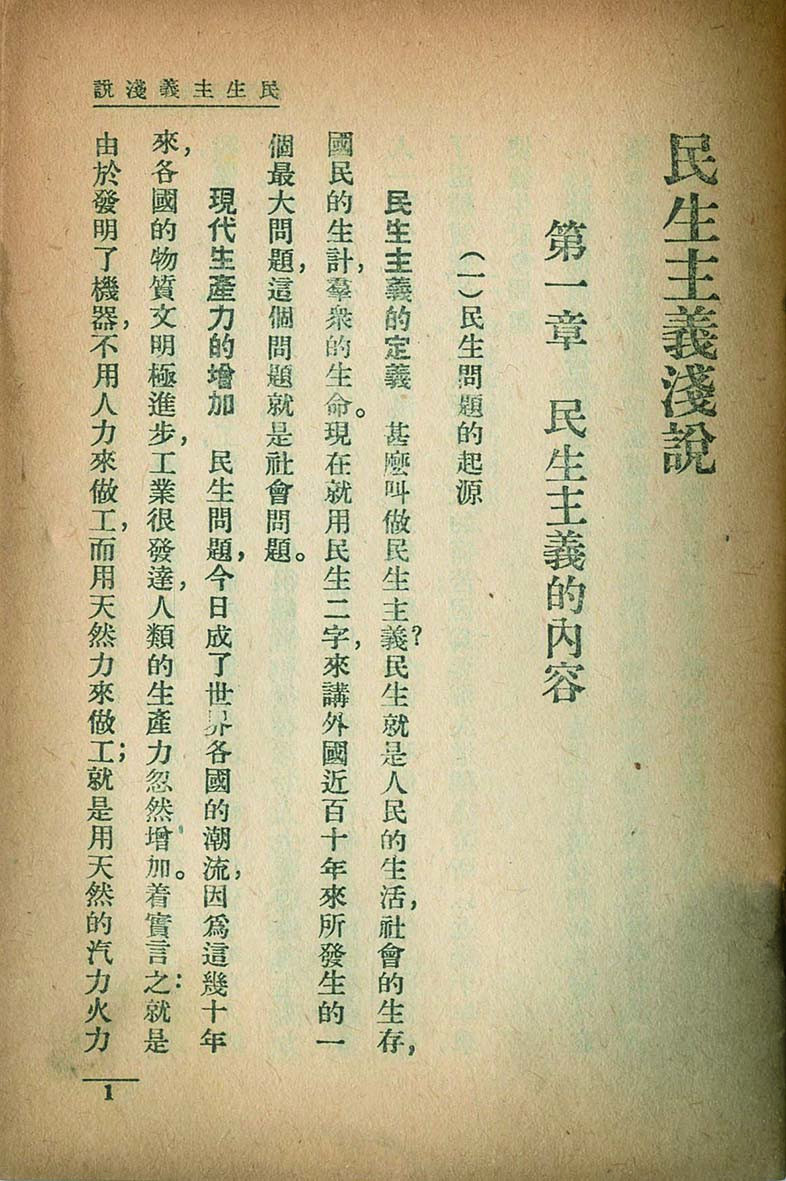 民生主義淺說
民生主義淺說
第一章　民生主義的內容
（一）民生問題的起源
民生主義的定義　甚麼叫做民生主義？民生就是人民的生活，社會的生存，
國民的生計，羣衆的生命。現在就用民生二字，來講外國近百十年來所發生的一
個最大問題，這個問題就是社會問題。
現代生產力的增加　民生問題，今日成了世界各國的潮流，因爲這幾十年
來，各國的物質文明極進步，工業很發達，人類的生產力忽然增加。着實言之：就是
由於發明了機器，不用人力來做工，而用天然力來做工；就是用天然的汽力火力
1